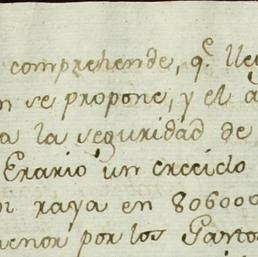 comprehende, q.e lle
n se propone, y el a
a la seguridad de
Erario un crecido
raya en 806000
menor por los Gastos